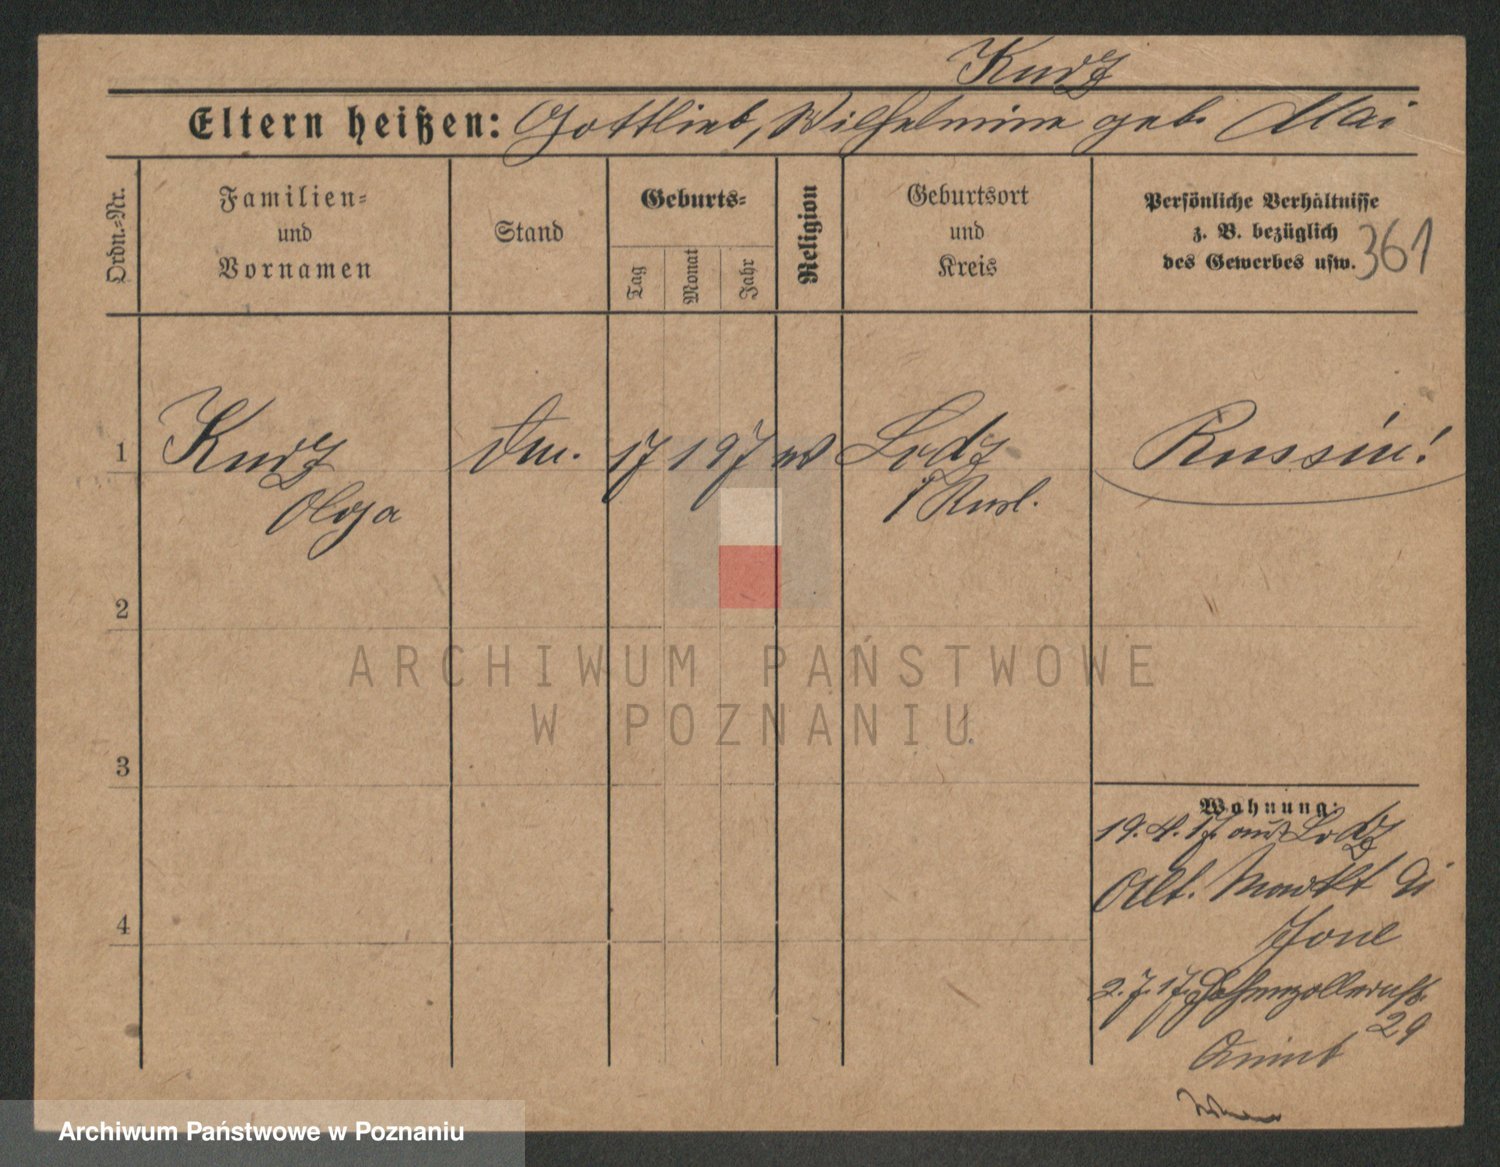 Kudz
Eltern heißen: Gottlieb, Wilhelmine geb. Mai
Ordn.=Nr.
Familien=
und
Vornamen
Stand
Geburts=
Tag
Monat
Jahr
Religion
Geburtsort
und
Kreis
Persönliche Verhältnisse
z. B. bezüglich
des Gewerbes usw.
361
1 Kudz 17 1 97 Lodz Russin!
Olga i Rusl.
2
ARCHIWUM PAŃSTWOWE
W POZNANIU
3
Wohnung:
19.4.17. aus Lodz
Alt. Markt
4
2.7.17. Hohenzollernst.
29
Archiwum Państwowe w Poznaniu